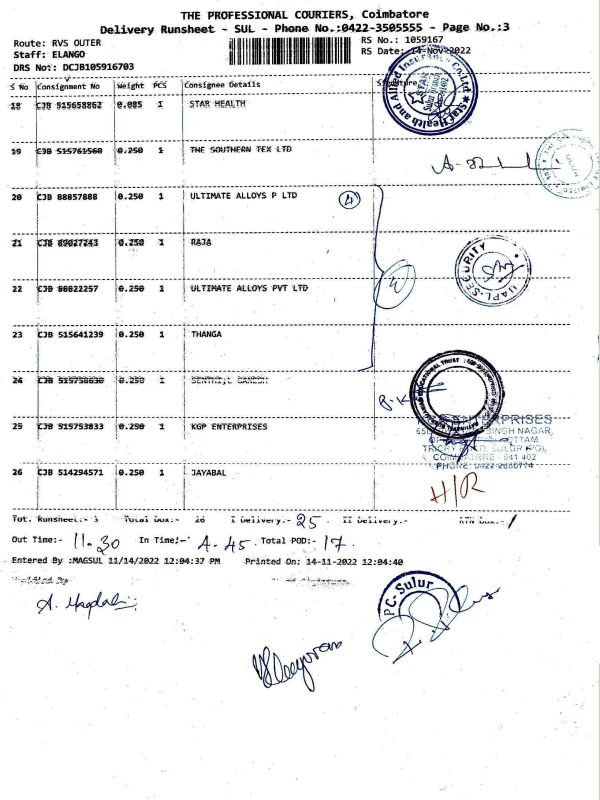 THE PROFESSIONAL COURIERS, Coimbatore
Delivery Runsheet - SUL - Phone No.:0422-3505555 - Page No.:3
Route: RVS OUTER
RS No.: 1059167
Staff: ELANGO
RS Date: 14-Nov-2022
DRS No:: DCJB105916703
S No Consignment No Weight PCS Consignee Details Signature
18 CJB 515658862 0.085 1 STAR HEALTH
19 CJB 515761560 0.250 1 THE SOUTHERN TEX LTD
20 CJB 88857888 0.250 1 ULTIMATE ALLOYS P LTD
21 CJB 89027243 0.250 1 RAJA
22 CJB 88822257 0.250 1 ULTIMATE ALLOYS PVT LTD
UAPL-SECURITY
23 CJB 515641239 0.250 1 THANGA
24 CJB 0.250 1
25 CJB 515753833 0.250 1 KGP ENTERPRISES
ENTERPRISES
SINGH NAGAR,
TRICHY ROAD, SULUR (PO),
COIMBATORE - 641 402
PHONE: 0422-2680774
26 CJB 514294571 0.250 1 JAYABAL
H/R
Tot. Runsheet:- 3 Total Dox:- 26 I Delivery:- 25 II Delivery:- RTN Dox:-
Out Time:- 11.30 In Time:- Total POD:- 17
Entered By :MAGSUL 11/14/2022 12:04:37 PM Printed On: 14-11-2022 12:04:40
PC- Sulur